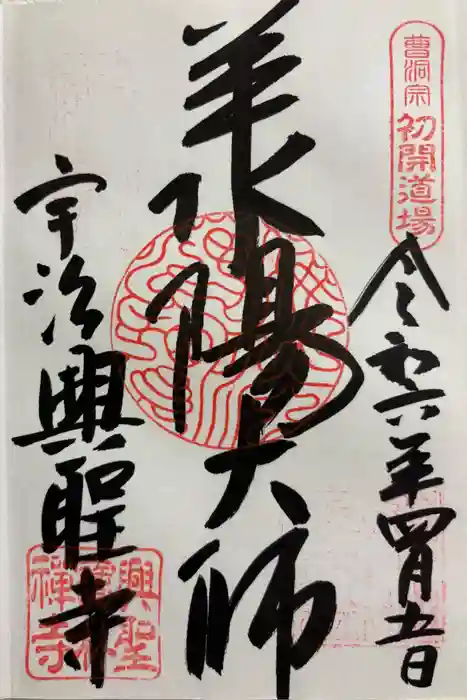 曹洞宗
初開道場
令和六年四月五日
承陽大師
宇治興聖寺
興聖
寶林
禪寺